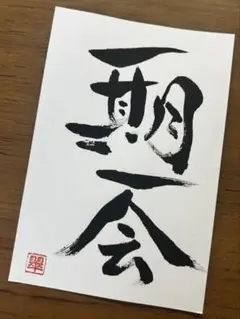 一期一会
翠